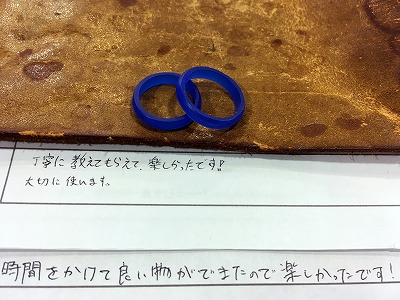 丁寧に教えてもらえて、楽しかったです!
大切に使います。
時間をかけて良い物ができたので楽しかったです!